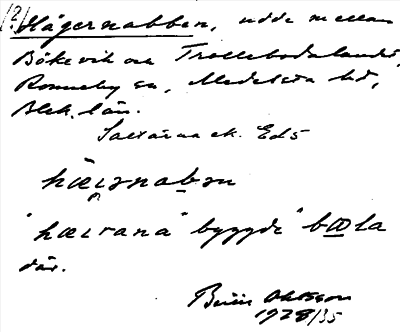 (?) Hägernabben, udde mellan
Bökevik och Trollebodalandet,
Ronneby sn, Medelsta hd,
Blek. län.
Saxärna ek. Ed5
hæɪənabən
"hæɪrana" byggde "bola
där.
Ohlsson
1928/35